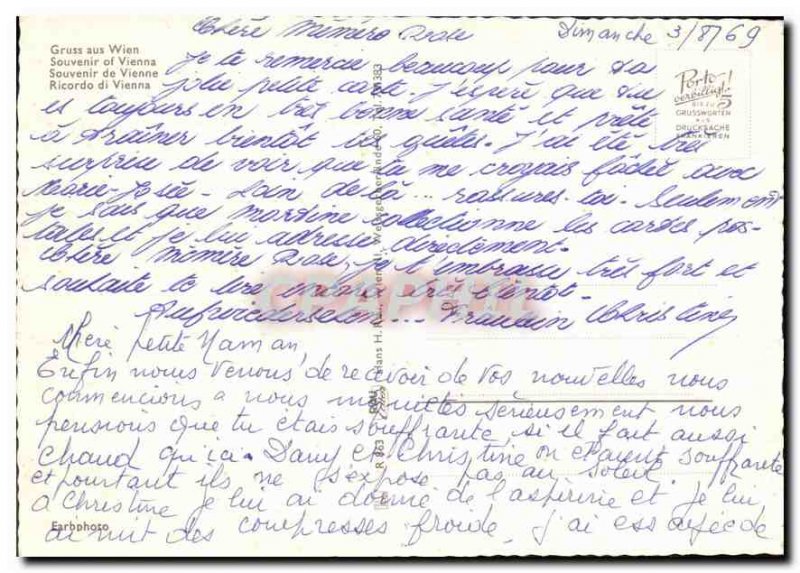 Gruss aus Wien
Souvenir of Vienna
Souvenir de Vienne
Ricordo di Vienna
Chère Mémère Rose Dimanche 3/8/69
Je te remercie beaucoup pour ta
jolie petite carte. J'espère que tu
es toujours en très bonne santé et prête
à traîner bientôt tes guêtes. J'ai été très
surprise de voir que tu me croyais fâchée avec
Marie-Josée. Loin de là... rassures-toi. Seulement
je sais que Martine collectionne les cartes pos-
tales et je lui adresse directement.
Chère Mémère Rose, je t'embrasse très fort et
souhaite te lire encore très bientôt.
Aufwiedersehen... Christine
Porto-
verbilligt!
BIS ZU 5
GRUSSWORTEN
ALS
DRUCKSACHE
FRANKIEREN
petite Maman,
Enfin nous venons de recevoir de vos nouvelles nous
commencions a nous inquietes serieusement nous
pensions que tu étais souffrante si il fait aussi
chaud qu'ici. Dany et Christine on étaient souffrante
et pourtant ils ne s'expose pas au soleil
a Christine je lui ai donné de l'aspirine et je lui
ai mit des compresses froide, j'ai essayée de
Farbphoto
R 363
CPAPHIL